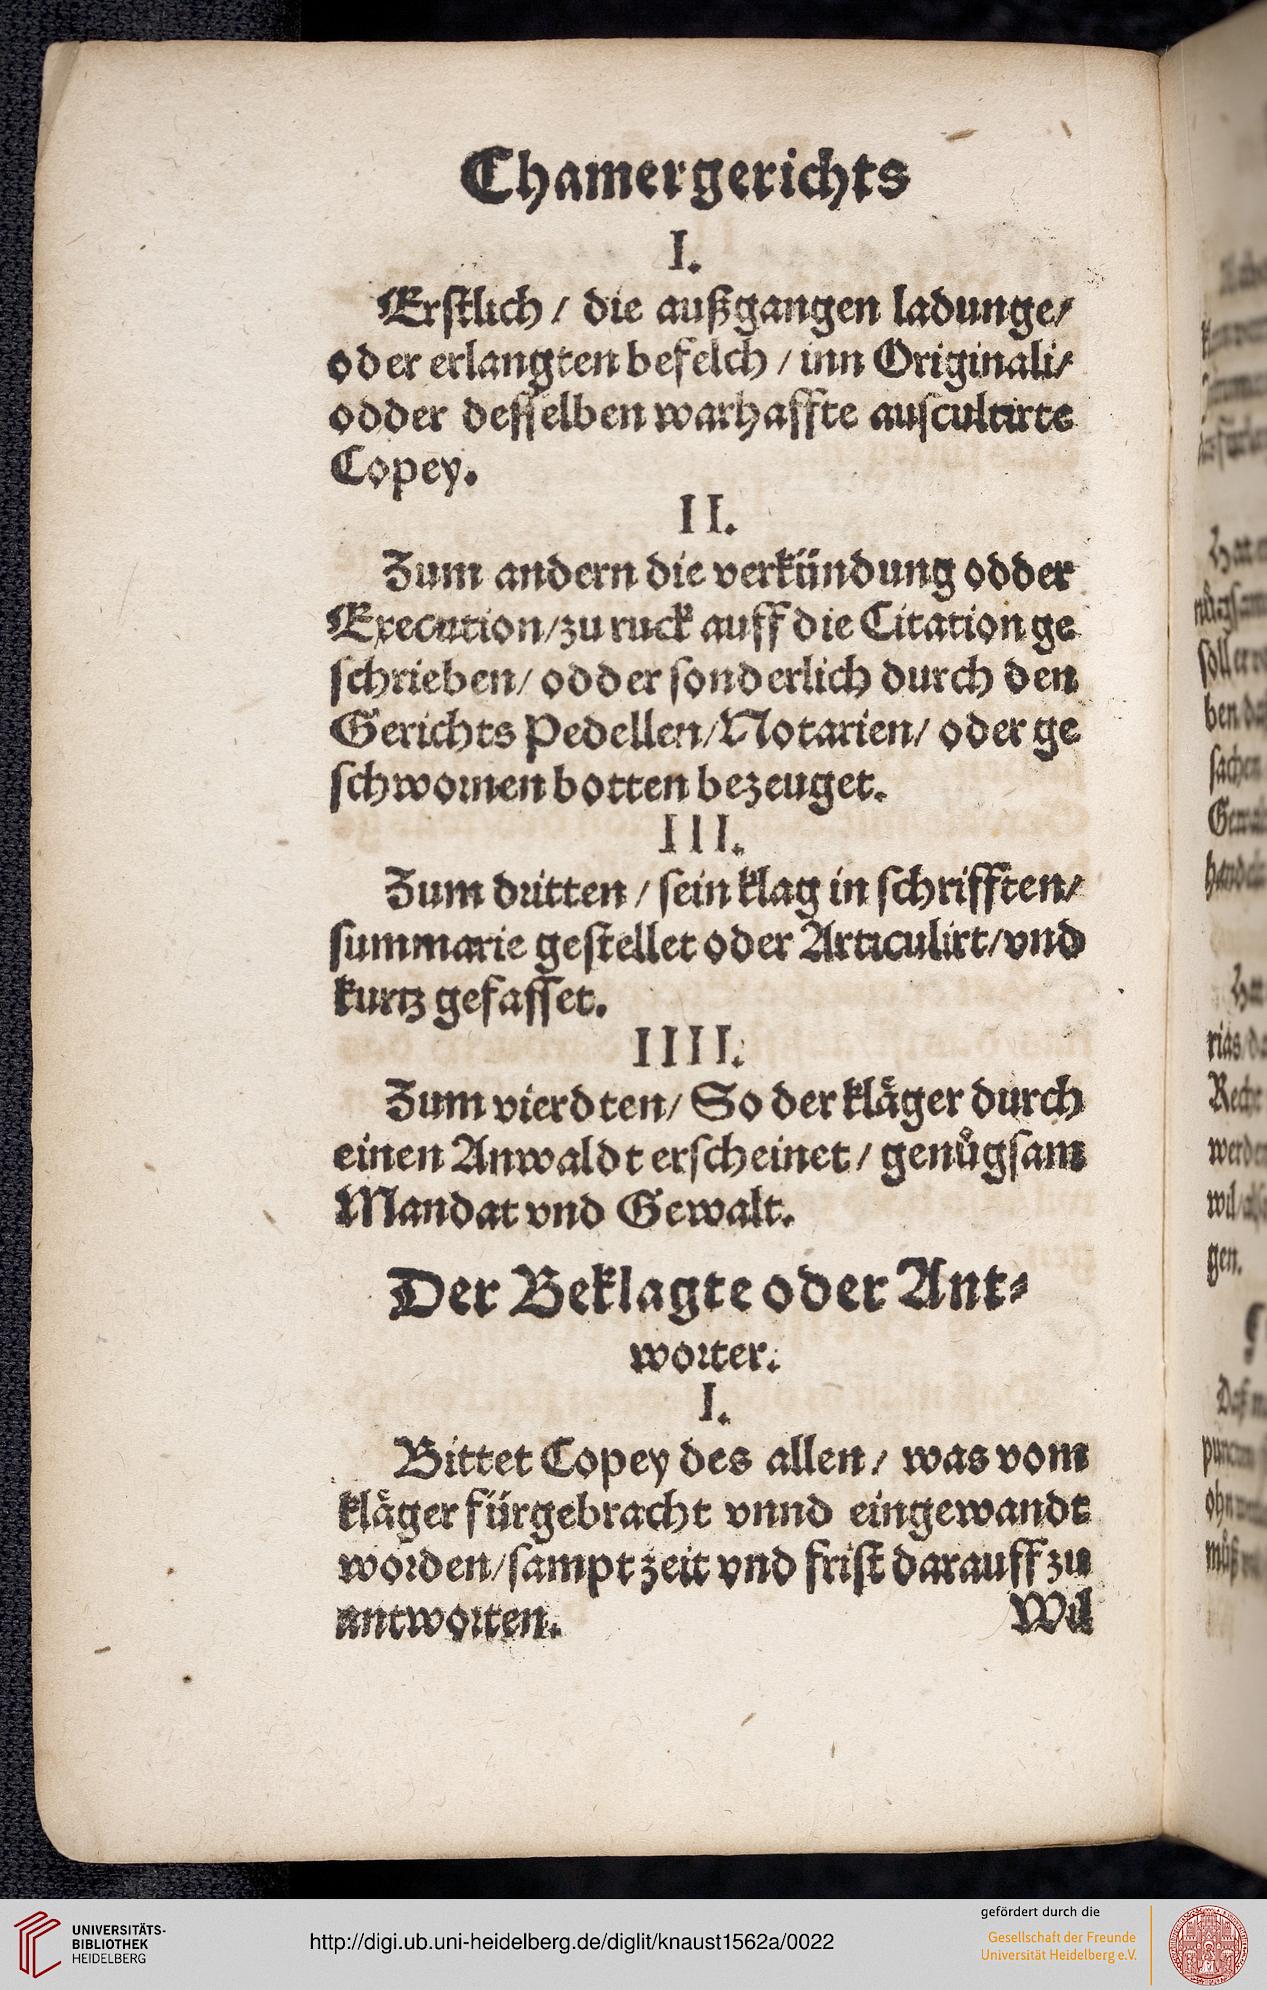 Chamergerichts
I.
Erstlich / die außgangen ladunge/
oder erlangten befelch / inn Originali/
odder desselben warhaffte auscultirte
Copey.
II.
Zum andern die verkündung odder
Execution/zu ruck auff die Citation ge
schrieben/ odder sonderlich durch den
Gerichts Pedellen/Notarien/ oder ge
schwornen botten bezeuget.
III.
Zum dritten / sein klag in schrifften/
summarie gestellet oder Articulirt/vnd
kurtz gefasset.
IIII.
Zum vierdten/ So der kläger durch
einen Anwaldt erscheinet / genůgsam
Mandat vnd Gewalt.
Der Beklagte oder Ant⸗
worter.
I.
Bittet Copey des allen / was vom
kläger fürgebracht vnnd eingewandt
worden/sampt zeit vnd frist darauff zu
antworten.
Wil
UNIVERSITÄTS-
BIBLIOTHEK
HEIDELBERG
http://digi.ub.uni-heidelberg.de/diglit/knaust1562a/0022
gefördert durch die
Gesellschaft der Freunde
Universität Heidelberg e.V.